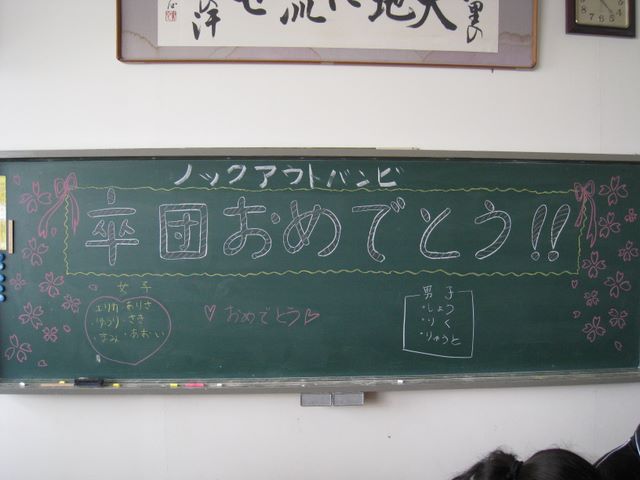 ノックアウトバンビ
卒団おめでとう!!
女子
エリカ・ありさ
・ゆうり・さき
・すみ・あおい
♡おめでとう♡
男子
・しょう
・りく
・りゅうと